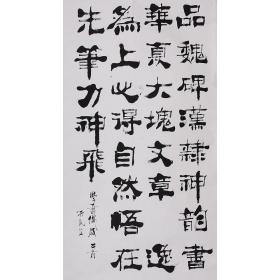 品魏碑漢隸神韵書
華夏大塊文章逸
為上心得自然悟在
先筆力神飛